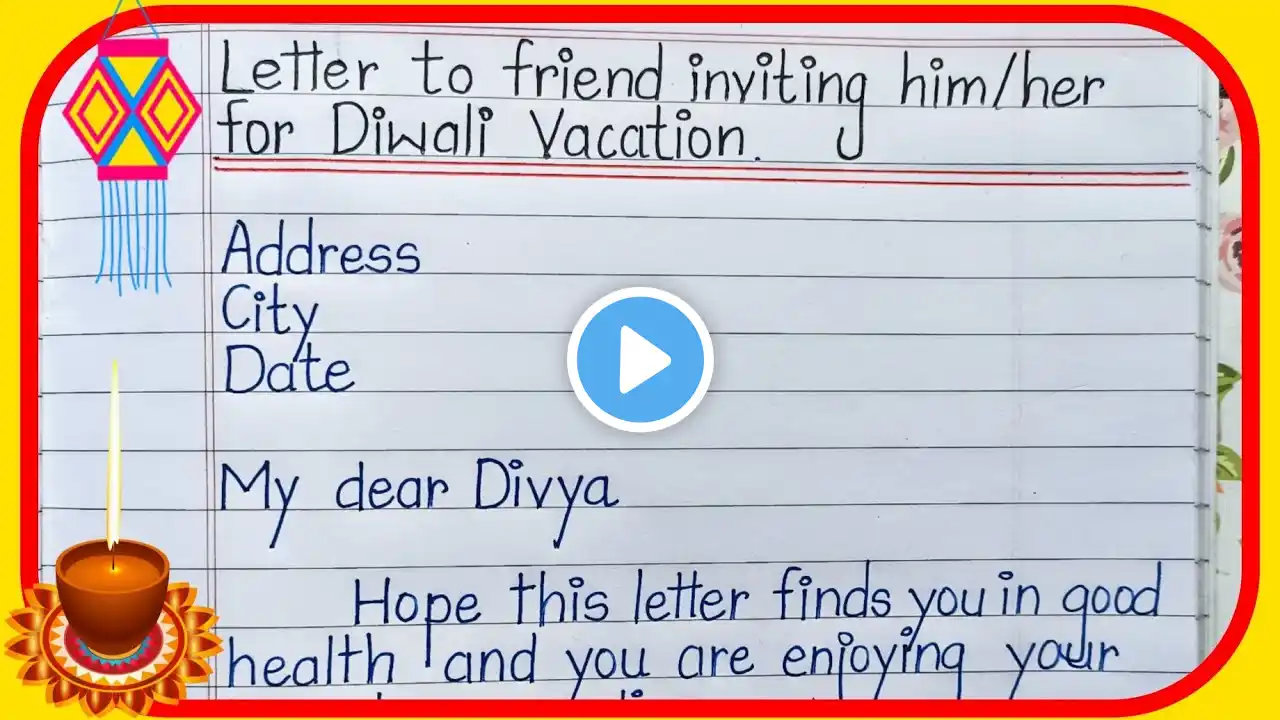 Letter to friend inviting him/her
for Diwali Vacation.
Address
City
Date
My dear Divya
Hope this letter finds you in good
health and you are enjoying your